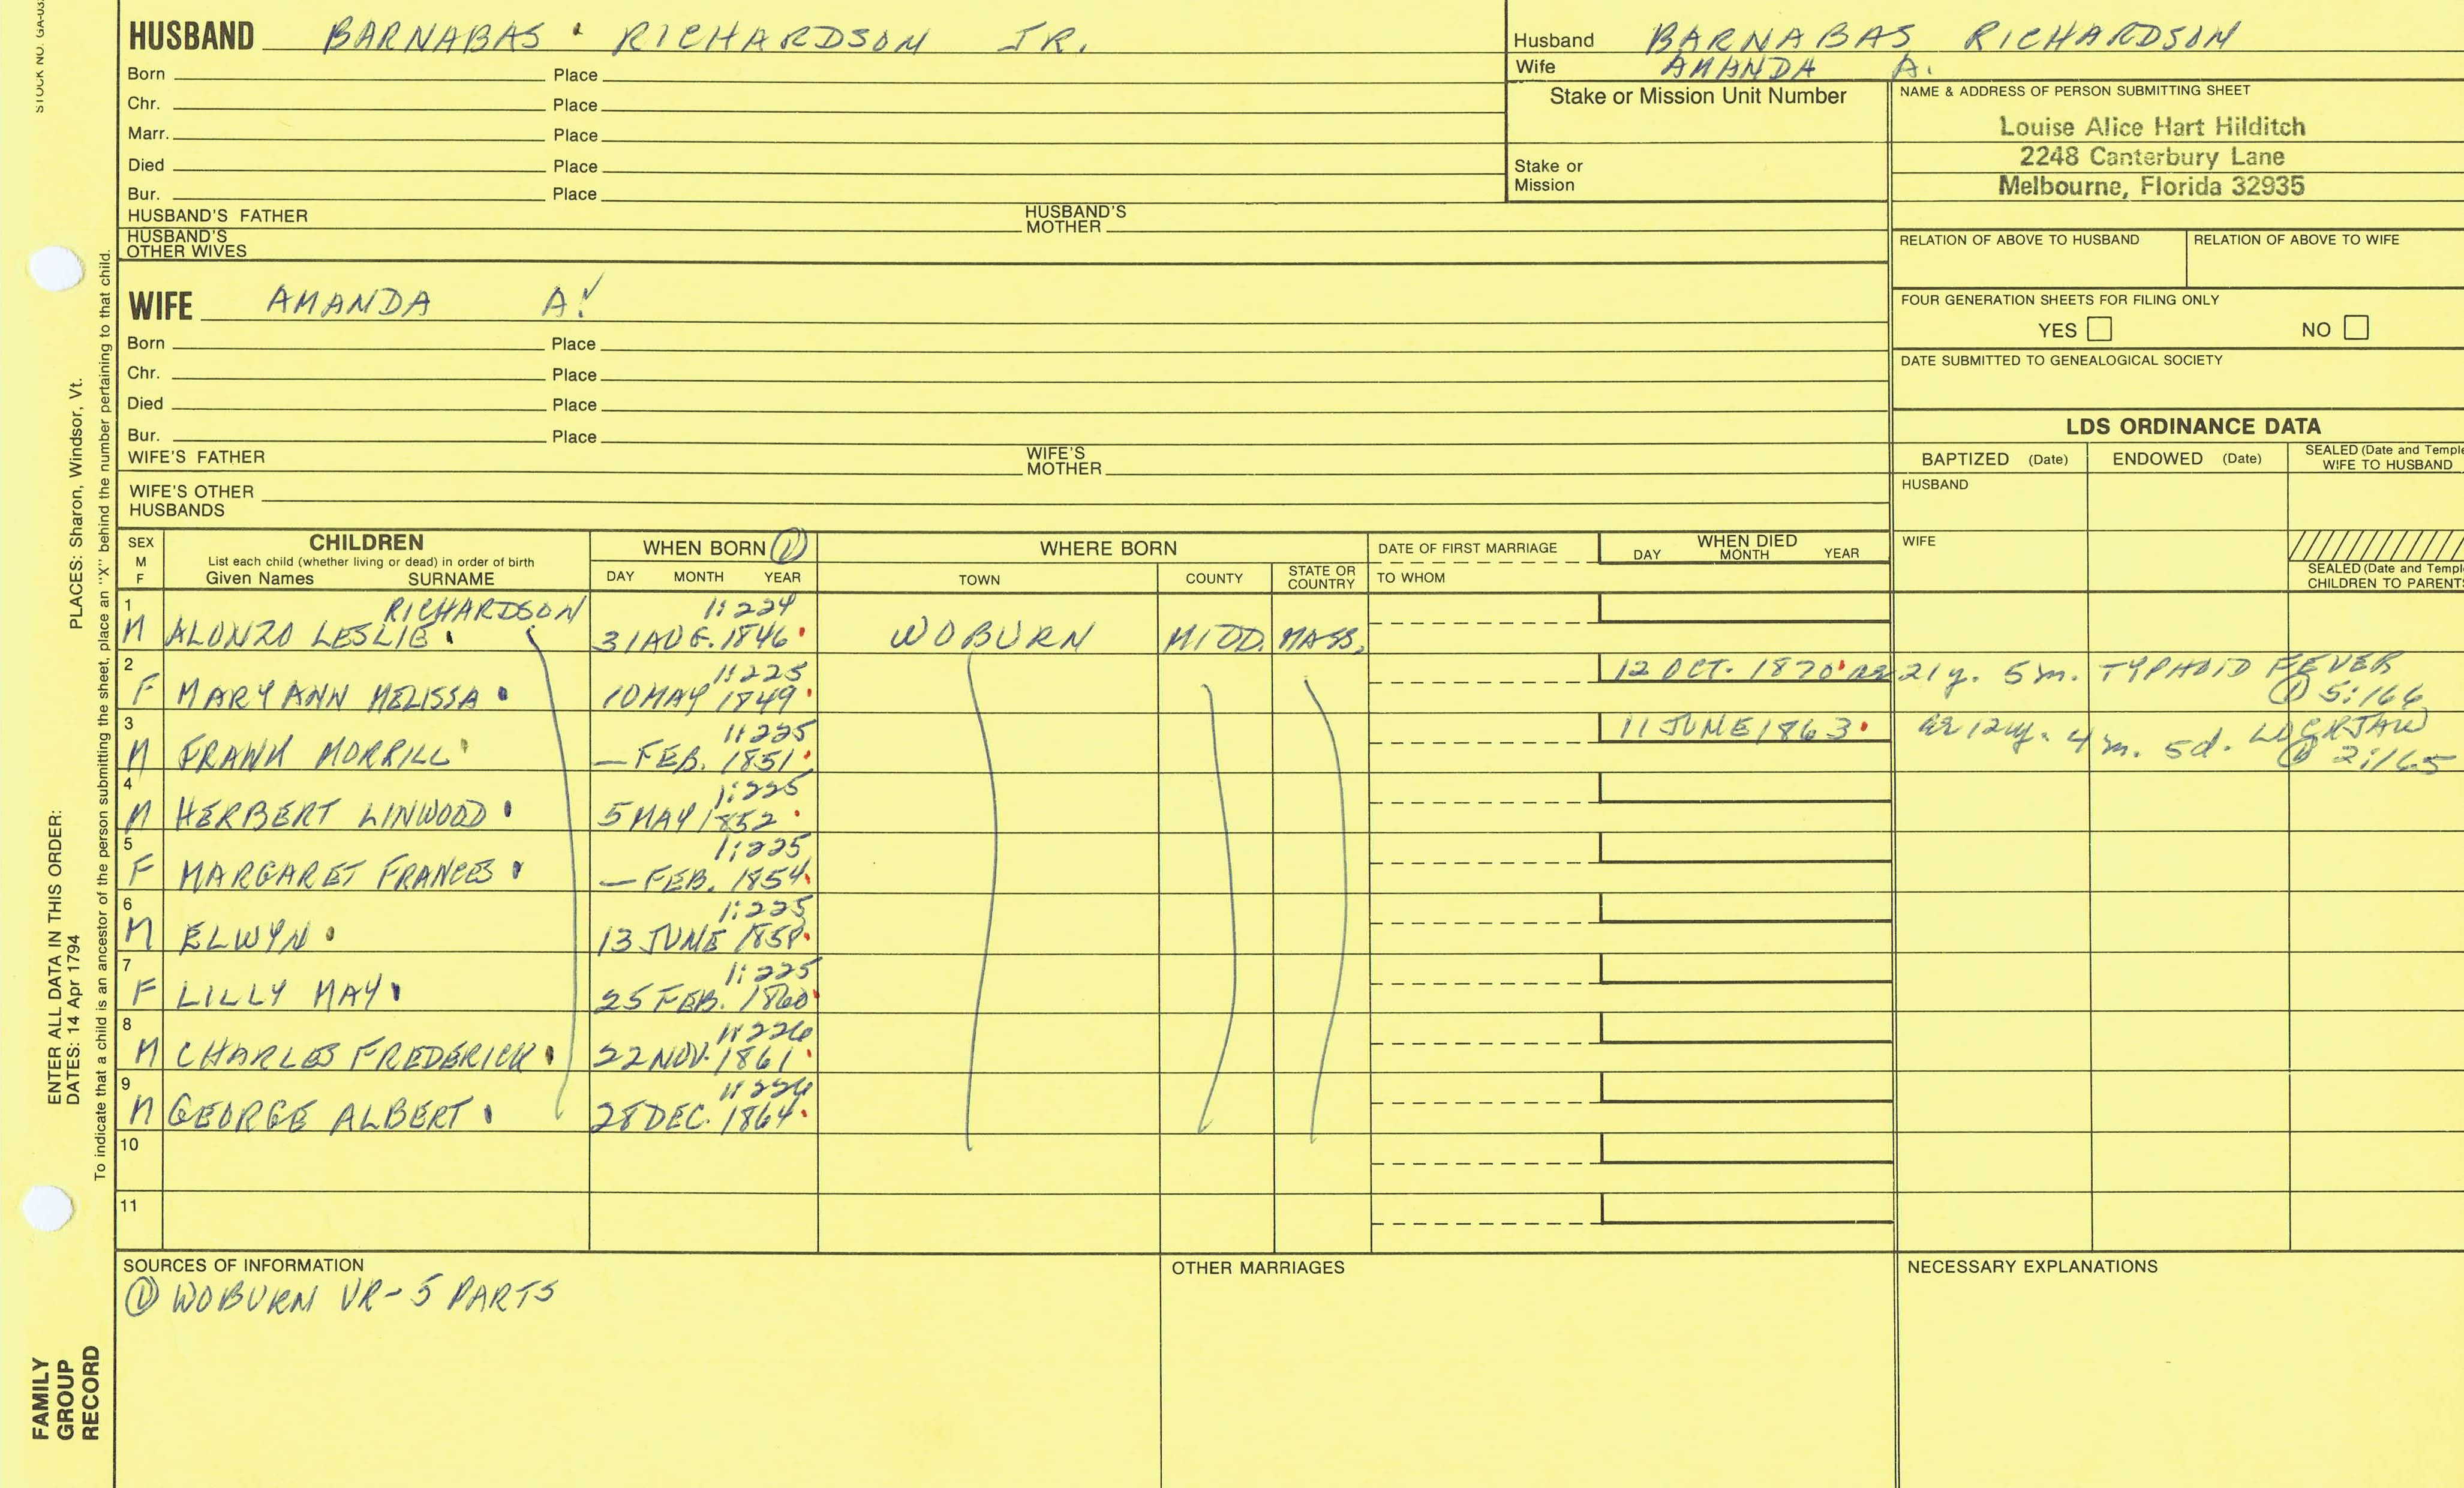 STOCK NO. GA-03
HUSBAND BARNABAS RICHARDSON JR.
Born Place
Chr. Place
Marr. Place
Died Place
Bur. Place
HUSBAND'S FATHER HUSBAND'S MOTHER
HUSBAND'S OTHER WIVES
Husband BARNABAS RICHARDSON
Wife AMANDA A.
Stake or Mission Unit Number
Stake or Mission
NAME & ADDRESS OF PERSON SUBMITTING SHEET
Louise Alice Hart Hilditch
2248 Canterbury Lane
Melbourne, Florida 32935
RELATION OF ABOVE TO HUSBAND RELATION OF ABOVE TO WIFE
FOUR GENERATION SHEETS FOR FILING ONLY
YES NO
DATE SUBMITTED TO GENEALOGICAL SOCIETY
WIFE AMANDA A.
Born Place
Chr. Place
Died Place
Bur. Place
WIFE'S FATHER WIFE'S MOTHER
WIFE'S OTHER HUSBANDS
LDS ORDINANCE DATA
BAPTIZED (Date) ENDOWED (Date) SEALED (Date and Temple
WIFE TO HUSBAND
HUSBAND
WIFE
SEALED (Date and Templ
CHILDREN TO PARENTS
SEX M F
CHILDREN
List each child (whether living or dead) in order of birth
Given Names SURNAME
WHEN BORN ①
DAY MONTH YEAR
WHERE BORN
TOWN COUNTY STATE OR COUNTRY
DATE OF FIRST MARRIAGE
TO WHOM
WHEN DIED
DAY MONTH YEAR
1 RICHARDSON 1:224
M ALONZO LESLIE 31 AUG. 1846 WOBURN MIDD. MASS.
2 1:225 12 OCT. 1870 ae 21y. 5m. TYPHOID FEVER
F MARY ANN MELISSA 10 MAY 1849 ① 5:166
3 1:225 11 JUNE 1863 ae 12y. 4m. 5d. LOCKJAW
M FRANK MORRILL — FEB. 1851 ① 2:165
4 1:225
M HERBERT LINWOOD 5 MAY 1852
5 1:225
F MARGARET FRANCES — FEB. 1854
6 1:225
M ELWYN 13 JUNE 1858
7 1:225
F LILLY MAY 25 FEB. 1860
8 1:226
M CHARLES FREDERICK 22 NOV. 1861
9 1:226
M GEORGE ALBERT 28 DEC. 1864
10
11
SOURCES OF INFORMATION
① WOBURN VR - 5 PARTS
OTHER MARRIAGES
NECESSARY EXPLANATIONS
ENTER ALL DATA IN THIS ORDER:
DATES: 14 Apr 1794 PLACES: Sharon, Windsor, Vt.
To indicate that a child is an ancestor of the person submitting the sheet, place an "X" behind the number pertaining to that child.
FAMILY
GROUP
RECORD